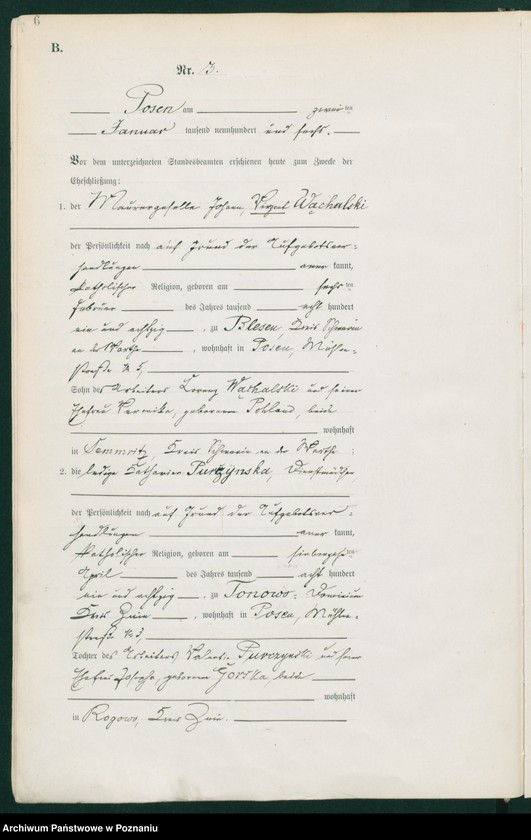 6
B.
Nr. 3.
Posen am zwei ten
Januar tausend neunhundert und sechs.
Vor dem unterzeichneten Standesbeamten erschienen heute zum Zwecke der
Eheschließung:
1. der Maurergeselle Johann, Wachalski
der Persönlichkeit nach auf Grund der Aufgebotsver-
handlungen aner kannt,
katholischer Religion, geboren am sechs ten
Februar des Jahres tausend acht hundert
ein und achtzig, zu Blesen, Kreis Schwerin
an der Warthe, wohnhaft in Posen, Mühlen-
straße № 5,
Sohn des Arbeiters Lorenz Wachalski und seiner
Ehefrau Veronika, geborenen Pohland, beide
wohnhaft
in Semmritz, Kreis Schwerin an der Warthe;
2. die ledige Katharina Purczynska, Dienstmädchen
der Persönlichkeit nach auf Grund der Aufgebotsver-
handlungen aner kannt,
katholischer Religion, geboren am siebenzehn ten
April des Jahres tausend acht hundert
und achtzig, zu Tonowo-Dominium
Kreis Znin, wohnhaft in Posen, Mühlen-
straße № 3,
Tochter des Arbeiters Valentin Purczynski und seiner
Ehefrau Josepha, geborenen Górska, beide
wohnhaft
in Rogowo, Kreis Znin.
Archiwum Państwowe w Poznaniu